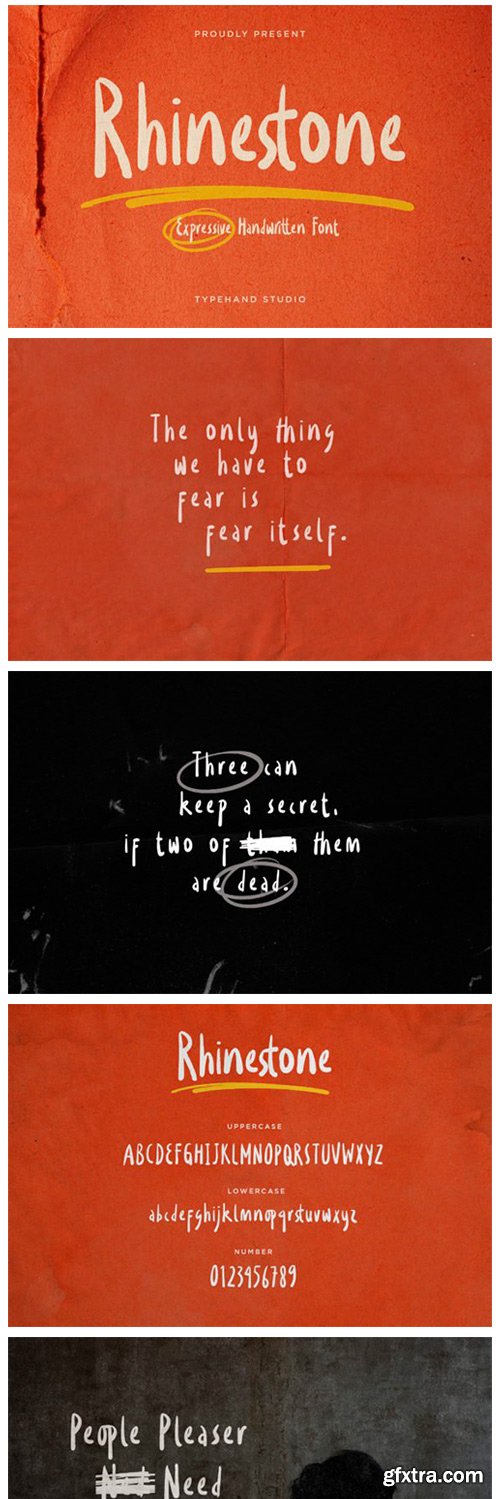 PROUDLY PRESENT
Rhinestone
Expressive Handwritten Font
TYPEHAND STUDIO
The only thing
we have to
fear is
fear itself.
Three can
keep a secret,
if two of them them
are dead.
Rhinestone
UPPERCASE
ABCDEFGHIJKLMNOPQRSTUVWXYZ
LOWERCASE
abcdefghijklmnopqrstuvwxyz
NUMBER
0123456789
People Pleaser
Not Need
gfxtra.com